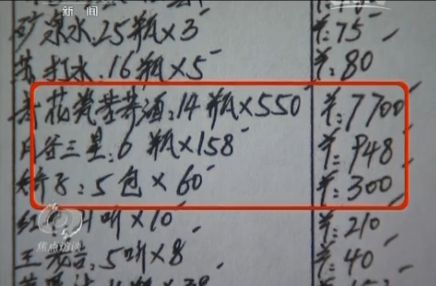 新闻
矿泉水:25瓶×3 ¥:75
苏打水:16瓶×5 ¥:80
青花瓷芬酒:14瓶×550 ¥:7700
三星:6瓶×158 ¥:948
5包×60 ¥:300
红 听×10 ¥:210
王老吉:5听×8 ¥:40
焦点访谈